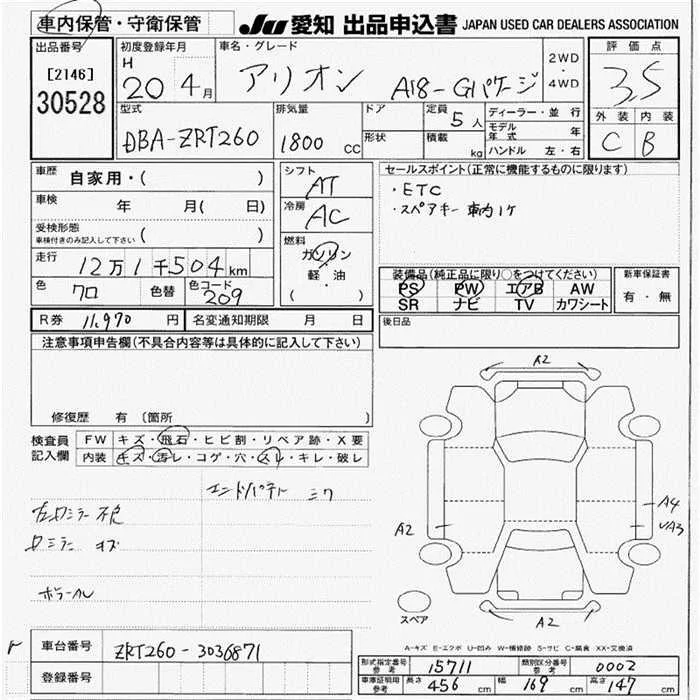 車内保管・守衛保管
JU 愛知 出品申込書 JAPAN USED CAR DEALERS ASSOCIATION
出品番号
[2146]
30528
初度登録年月
H 20 4月
車名・グレード
アリオン A18-Gパケージ
2WD・4WD
評価点
3.5
外装 内装
C B
型式
DBA-ZRT260
排気量
1800 CC
ドア
形状
定員 5人
積載 kg
ディーラー・並行
モデル年式 年
ハンドル 左・右
車歴 自家用・( )
車検 年 月( 日)
受検形態
車検付きのみ記入して下さい ( )
走行 12万1千504km
色 クロ 色替 色コード 209
シフト AT
冷房 AC
燃料
ガソリン
軽・油
( )
セールスポイント(正常に機能するものに限ります)
・ETC
・スペアキー 車内1ケ
装備品(純正品に限り○をつけてください)
PS PW エアB AW
SR ナビ TV カワシート
新車保証書
有・無
R券 11,970 円 名変通知期限 月 日
後日品
注意事項申告欄(不具合内容等は具体的に記入して下さい)
修復歴 有 〔箇所
検査員記入欄
FW キズ・飛石・ヒビ割・リペア跡・X要
内装 キズ・汚レ・コゲ・穴・スレ・キレ・破レ
エンドパネル
左右ミラー 不良
ミラー キズ
A2
A4
A2
A2
スペア
A-キズ E-エクボ U-凹み W-補修跡 S-サビ C-腐食 XX-交換済
車台番号 ZRT260-3036871
登録番号
型式指定番号 参考 15711 類別区分番号 参考 0002
車庫証明用 参考 長さ 456 cm 幅 169 cm 高さ 147 cm